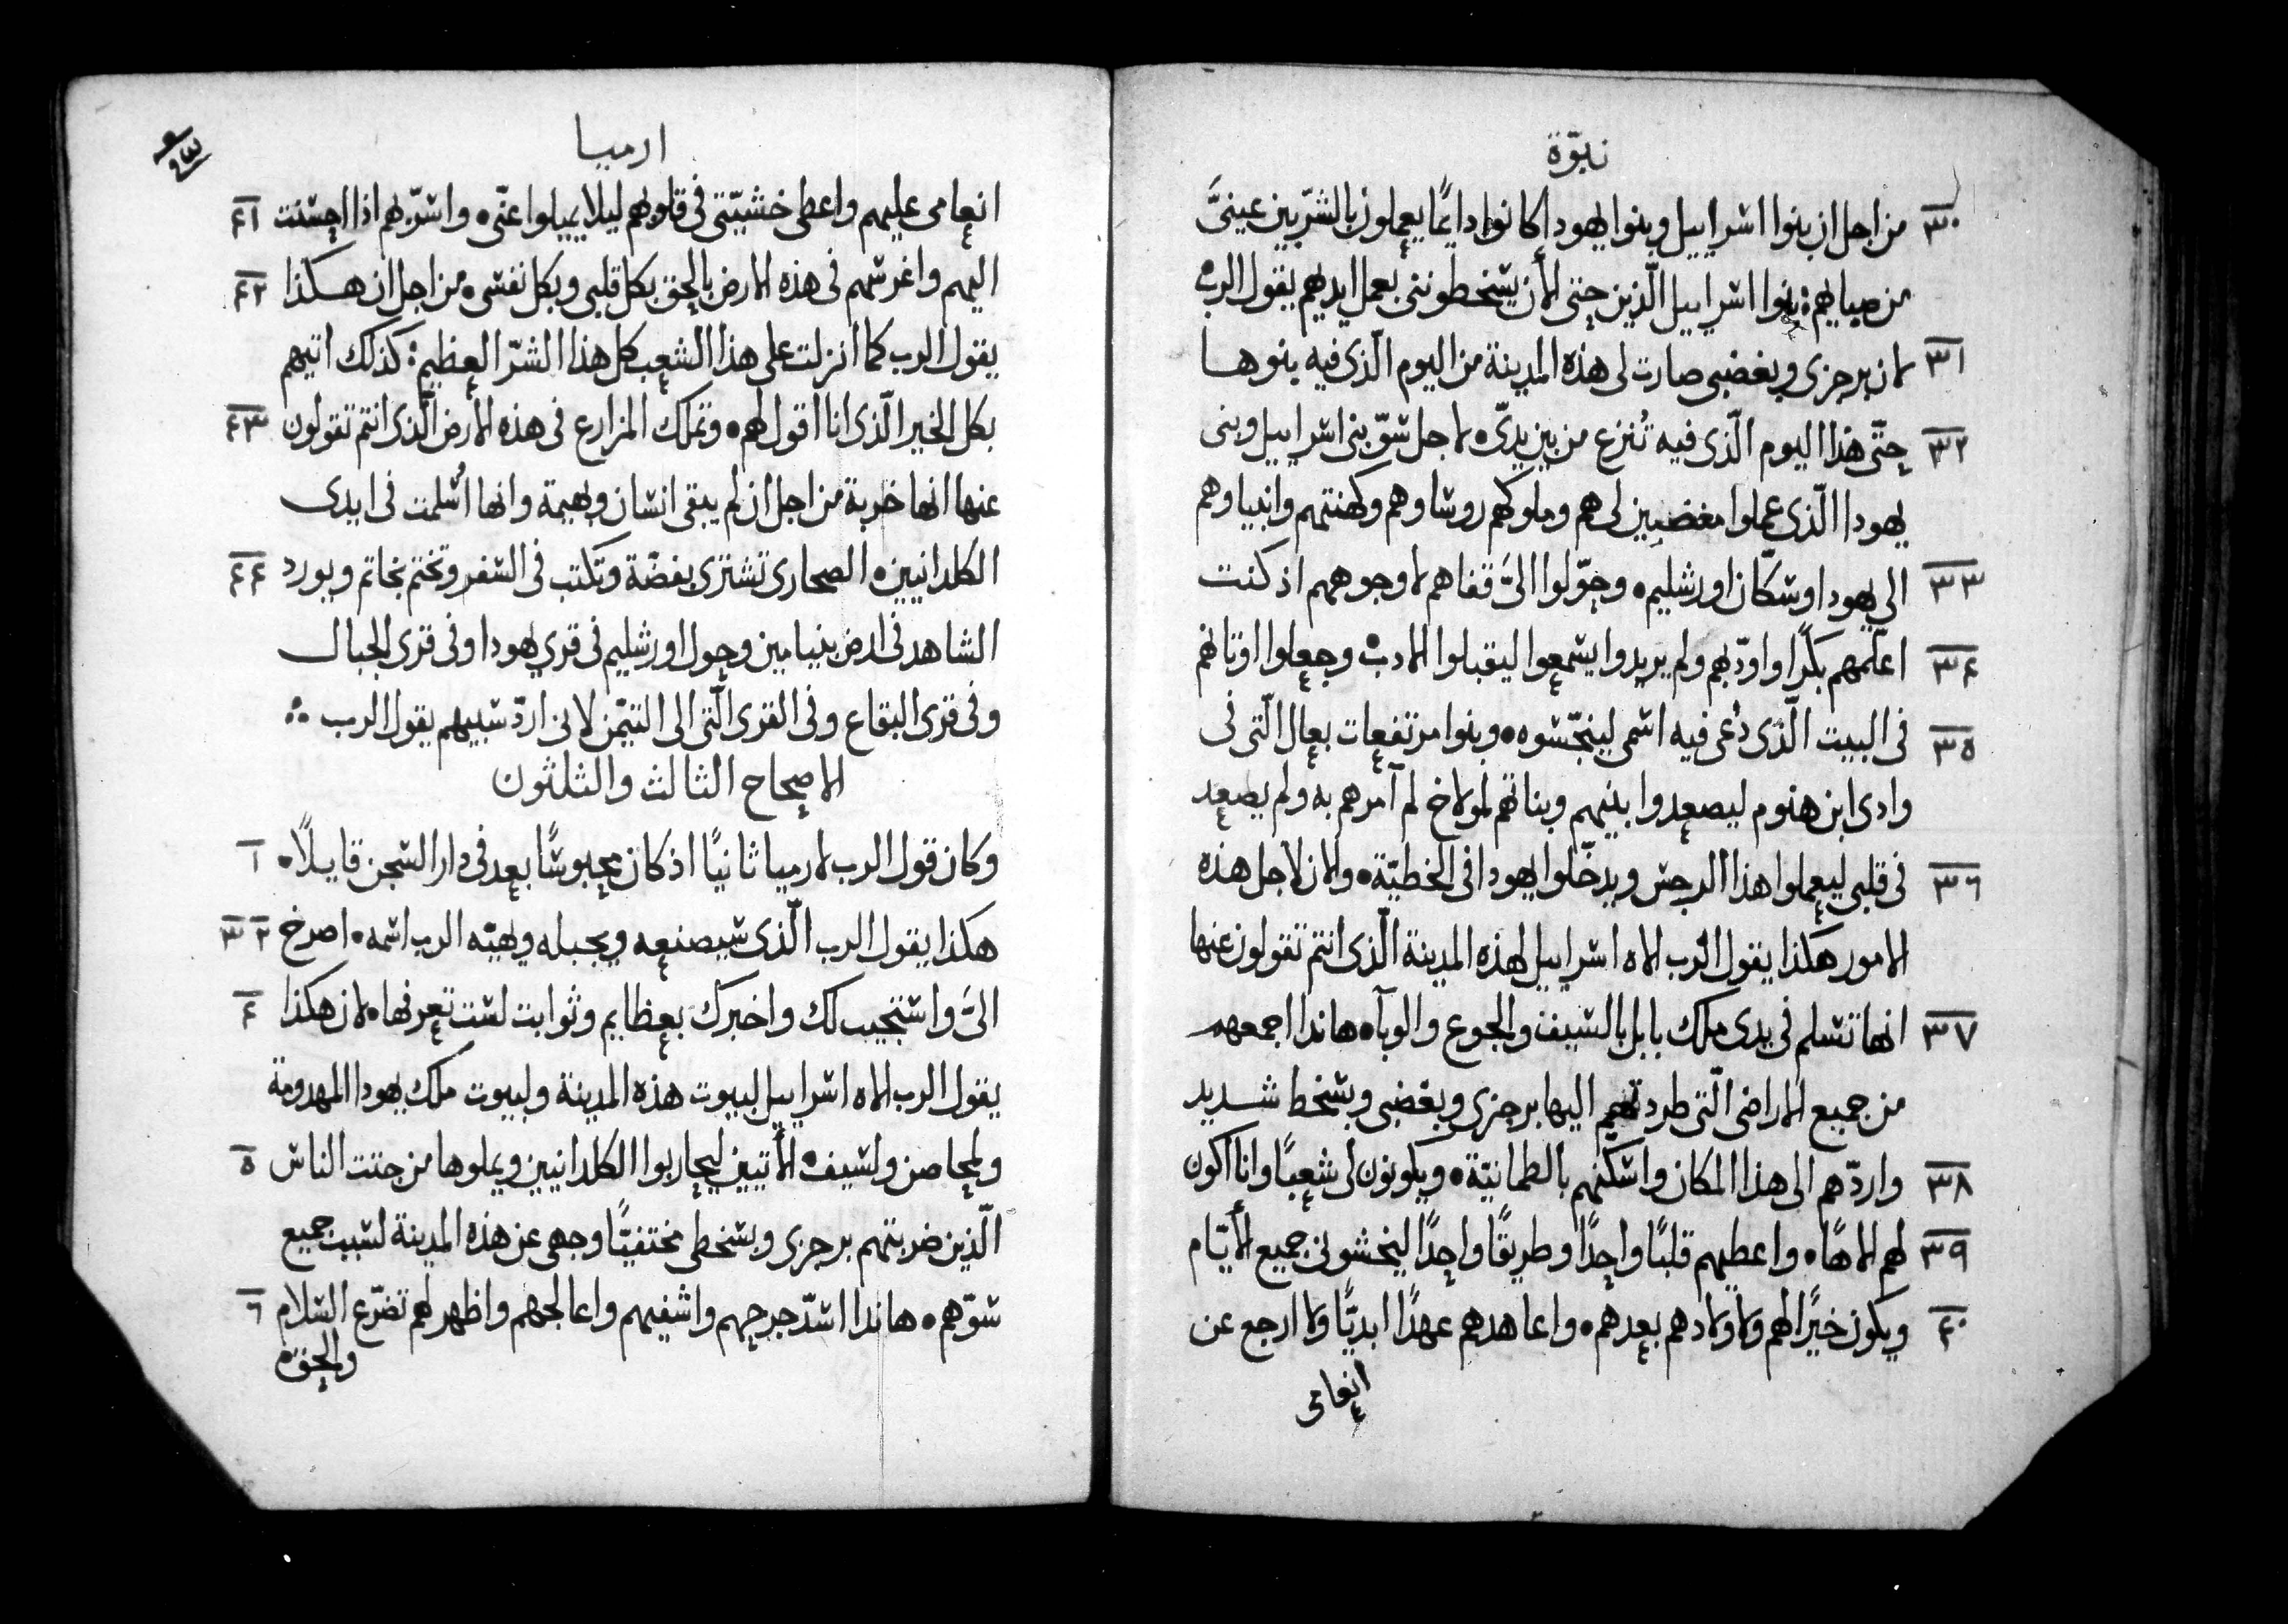 نبوّة
٣٠ من اجل ان بنوا اسراييل وبنوا يهودا كانوا دايمًا يعملون بالشرّ بين عينيَّ
من صباهم: بنوا اسراييل الّذين حتى الأن يسخطوننى بعمل ايديهم يقول الرب
٣١ لان برجزى وبغضبى صارت لى هذه المدينة من اليوم الّذى فيه بنوها
٣٢ حتّى هذا اليوم الّذى فيه تُنزع من بين يديّ. لاجل سوّ بنى اسراييل وبنى
يهودا الّذى عملوا مغضبين لى هم وملوكهم روساوهم وكهنتهم وانبياوهم
٣٣ الى يهودا وسكّان اورشليم. وحوّلوا اليَّ قفاهم لا وجوههم اذ كنت
٣٤ اعلّمهم بكرًا واودّبهم ولم يريدوا يسمعوا ليقبلوا الادب. وجعلوا اوثانهم
٣٥ فى البيت الّذى دُعى فيه اسمى لينجّسوه. وبنوا مرتفعات بعال الّتى فى
وادى ابن هنوم ليصعدوا بنيهم وبناتهم لمولاخ لم آمرهم به ولم يصعد
٣٦ فى قلبى ليعملوا هذا الرجس ويدخّلوا يهودا فى الخطيّة. والان لاجل هذه
الامور هكذا يقول الرب الاه اسراييل لهذه المدينة الّذى انتم تقولون عنها
٣٧ انها تسلم فى يدى ملك بابل بالسيف والجوع والوبآ. هاندا اجمعهم
من جميع الاراضى الّتى طردتهم اليها برجزى وبغضبى وبسخط شديد
٣٨ واردّهم الى هذا المكان واسكّنهم بالطمانيّة. ويكونون لى شعبًا وانا اكون
٣٩ لهم الاهًا. واعطيهم قلبًا واحدًا وطريقًا واحدًا ليخشونى جميع الأيّام
٤٠ ويكون خيرًا لهم ولاولادهم بعدهم. واعاهدهم عهدًا ابديًّا ولا ارجع عن
انعامى
ارميا
٤١ انعامى عليهم واعطى خشيّتى فى قلوبهم ليلا يميلوا عنّى. واسرّ بهم اذا احسنت
٤٢ اليهم واغرسهم فى هذه الارض بالحق بكل قلبى وبكل نفسى. من اجل ان هكذا
يقول الرب كما انزلت على هذا الشعب كل هذا الشرّ العظيم: كذلك اتيهم
٤٣ بكل الخير الّذى انا اقول لهم. وتملك المزارع فى هذه الارض الّذى انتم تقولون
عنها انها خربة من اجل ان لم يبقى انسان وبهيمة وانها اُسلمت فى ايدى
٤٤ الكلدانيين. الصحارى تشترى بفضّة وتكتب فى السفر وتختم بخاتم ويورد
الشاهد فى ارض بنيامين وحول اورشليم فى قرى يهودا وفى قرى الجبال
وفى قرى البقاع وفى القرى الّتى الى التيّمن لانى اردّ سبيهم يقول الرب
الاصحاح الثالث والثلثون
١ وكان قول الرب لارميا ثانيًا اذ كان محبوسًا بعد فى دار السجن قايلًا.
٢ ٣ هكذا يقول الرب الّذى سيصنعه ويجبله ويهيّه الرب اسمه. اصرخ
٤ اليَّ واستجيب لك واخبرك بعظايم وثوابت لست تعرفها. لان هكذا
يقول الرب الاه اسراييل لبيوت هذه المدينة ولبيوت ملك يهودا المهدومة
٥ ولمحاصن ولسيف. الأتيين ليحاربوا الكلدانيين ويملوها من جتت الناس
الّذين ضربتهم برجزى وبسخطى مختفيًّا وجهى عن هذه المدينة لسبب جميع
٦ سوّهم. هاندا اسدّ جرحهم واشفيهم واعالجهم واظهر لهم تضرّع السلام
والحق.